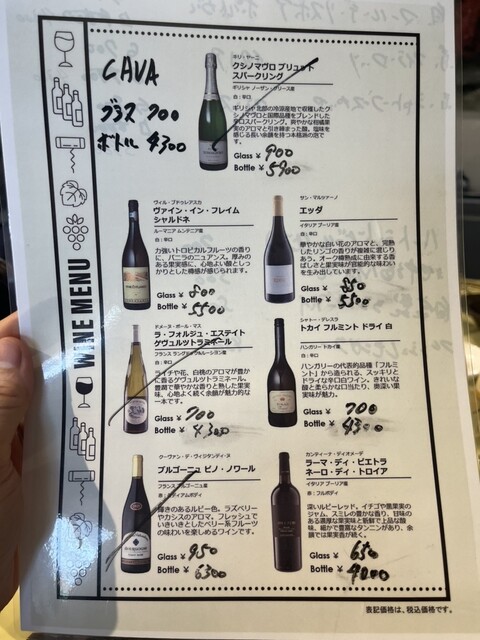 WINE MENU
CAVA
グラス 700
ボトル 4300
キリ・ヤーニ
クシノマヴロ ブリュット
スパークリング
ギリシャ ノーザン・グリース産
白：辛口
ギリシャ北部の冷涼産地で収穫したク
シノマヴロと国際品種をブレンドした
辛口スパークリング。爽やかな柑橘果
実のアロマと引き締まった酸。塩味を
感じる長い余韻を持つ本格派の泡で
す。
Glass ¥ 900
Bottle ¥ 5900
ヴィル・ブドゥレアスカ
ヴァイン・イン・フレイム
シャルドネ
ルーマニア ムンテニア産
白：辛口
力強いトロピカルフルーツの香り
に、バニラのニュアンス。厚みの
ある果実感に、心地よい酸としっ
かりとした樽感が感じられます。
Glass ¥ 800
Bottle ¥ 5500
サン・マルツァーノ
エッダ
イタリア プーリア産
白：辛口
華やかな白い花のアロマと、完熟
したリンゴの香りが複雑に混じり
あう。オーク樽熟成に由来する香
ばしさと果実味が官能的な味わい
を生み出しています。
Glass ¥ 850
Bottle ¥ 5500
ドメーヌ・ポール・マス
ラ・フォルジュ・エステイト
ゲヴュルツトラミネール
フランス ラングドック&ルーション産
白：辛口
ライチや花、白桃のアロマが豊か
に香るゲヴュルツトラミネール。
豊潤で華やかな香りと熟した果実
味、心地よく続く余韻が魅力的な
一本です。
Glass ¥ 700
Bottle ¥ 4300
シャトー・デレスラ
トカイ フルミント ドライ 白
ハンガリー トカイ産
白：辛口
ハンガリーの代表的品種「フルミ
ント」から造られる、スッキリと
ドライな辛口白ワイン。きれいな
酸と柔らかな口当たり、奥深い果
実味が魅力。
Glass ¥ 700
Bottle ¥ 4300
クーヴァン・デ・ヴィジタンディーヌ
ブルゴーニュ ピノ・ノワール
フランス ブルゴーニュ産
赤：ミディアムボディ
輝きのあるルビー色。ラズベリー
やカシスのアロマ。フレッシュで
いきいきとしたベリー系フルーツ
の味わいを楽しめるワインです。
Glass ¥ 950
Bottle ¥ 6300
カンティーナ・ディオメーデ
ラーマ・ディ・ピエトラ
ネーロ・ディ・トロイア
イタリア プーリア産
赤：フルボディ
深いルビーレッド。イチゴや農果実の
ジャム、スミレの豊かな香り、甘味の
ある濃厚な果実味と新鮮で上品な酸
味。細かで豊富なタンニンがあり、余
韻では果実香が続く。
Glass ¥ 650
Bottle ¥ 4000
表記価格は、税込価格です。